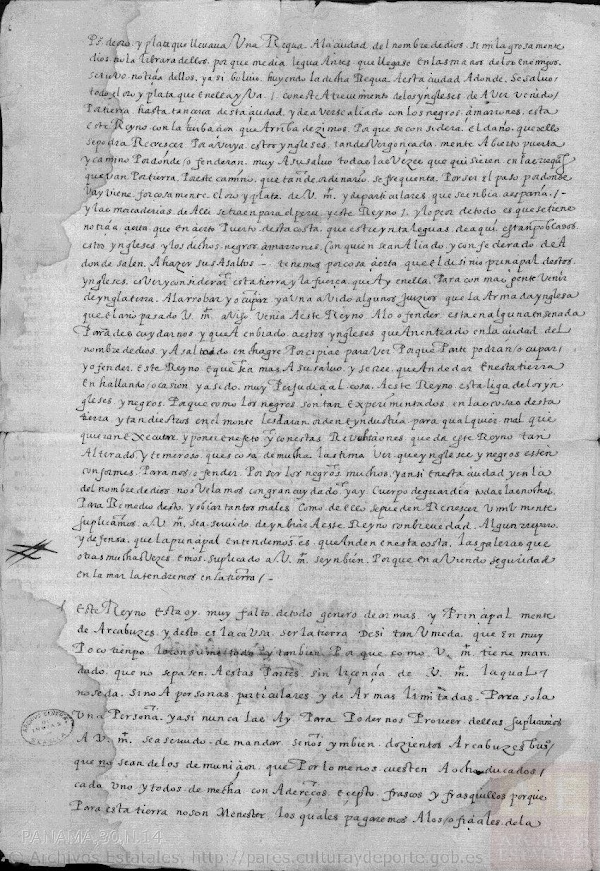 de oro y plata que lleuaua Una Requa A la ciudad del nombre de dios. si milagrosamente
dios no la librara dellos. por que media legua Antes que llegase En las manos de los Enemigos
se tuvo notiçia dellos, ya si boluio huyendo la dicha Requa A esta ciudad Adonde se saluo
todo el oro y plata que en ella yva / con este Atreuimento de los yngleses de Aver venido
Por tierra hasta tan cerca desta ciudad, y de averse aliado con los negros çimarrones, esta
este Reyno con la turbaçion que Arriba dezimos. Por que se considera el daño que dello
se podria Recresçer Por aver ya estos yngleses tan desvergonçada mente Abierto puerta
y camino Por donde ofenderan muy A su saluo todas las Vezes que quisieren
que van Por tierra Por este camino, que tan de ordinario se frequenta Por ser el paso por donde
va y viene forçosamente el oro y plata de V. mt. y de particulares que se enbia a españa /
y las mercaderias de Alli se traen para el peru, y este Reyno / y lo peor de todo es que se tiene
notiçia çierta que En çierto Puerto desta costa, que esta treynta leguas de aqui estan poblados
estos yngleses y los dichos negros çimarrones Con quien se an Aliado y confederado de A
donde salen A hazer sus Asaltos - tenemos por cosa çierta que el desinio prinçipal destos
yngleses es Ver y considerar esta tierra y la fuerça que Ay en ella. Para con mas gente venir
de ynglatierra A la rrobar y ocupar ya Una Avido algunos juizios que la Armada ynglesa
que el año pasado V. mt. Aviso Venia A este Reyno A lo ofender. esta en alguna ensenada
Para descuydarnos y que A enbiado a estos yngleses que An entrado En la ciudad del
nombre de dios y Asaltado en chagre Por espias para Ver Por que Parte podran ocupar
y ofender Este Reyno que sea mas A su saluo, y se cree que An de dar En esta tierra
En hallando ocasion ya sido muy Perjudiçial cosa A este Reyno esta liga de los yn
gleses y negros. Por que como los negros son tan Experimentados en las cosas desta
tierra y tan diestros en el monte les daran orden e yndustria para qualquier mal que
quieran Executar y poner en efeto y con estas Rebeliones queda este Reyno tan
Alterado, y temeroso, que es cosa de mucha lastima Ver que yngleses y negros esten
conformes Para nos ofender Por ser los negros muchos, y ansi En esta ciudad y en la
del nombre de dios nos Velamos con gran cuydado y ay Cuerpo de guardia todas las noches.
Para Remedio desto, y obiar tantos males Como dello se pueden Recresçer Umilmente
suplicamos a V. mt. sea seruido de ynbiar A este Reyno con brevedad Algun rreparo
y defensa, que la prinçipal entendemos es que Anden en esta costa las galeras que
otras muchas Vezes Emos suplicado a V. mt. se ynbien. Porque en Aviendo seguridad
en la mar la tendremos en la tierra /
Este Reyno Esta oy muy falto de todo genero de armas y Prinçipal mente
de Arcabuzes, y desto es la causa ser la tierra De si tan Umeda, que En muy
Poco tienpo lo consume todo y tanbien Por que como V. mt. tiene man
dado que no se pasen A estas Partes sin liçençia de V. mt. la qual
no se da Sino A personas particulares y de Armas limitadas Para sola
Una Persona, y asi nunca las Ay Para Podernos Proveer dellas suplicamos
A V. mt. sea seruido de mandar se nos ynbien dozientos Arcabuzes buenos
que no sean de los de muniçion que Por lo menos cuesten A ocho ducados /
cada Uno y todos de mecha con Adereços. Eçepto frascos y frasquillos porque
Para esta tierra no son Menester. los quales pagaremos A los ofiçiales de la
PANAMA,30,N.14
Archivos Estatales, http://pares.culturaydeporte.gob.es